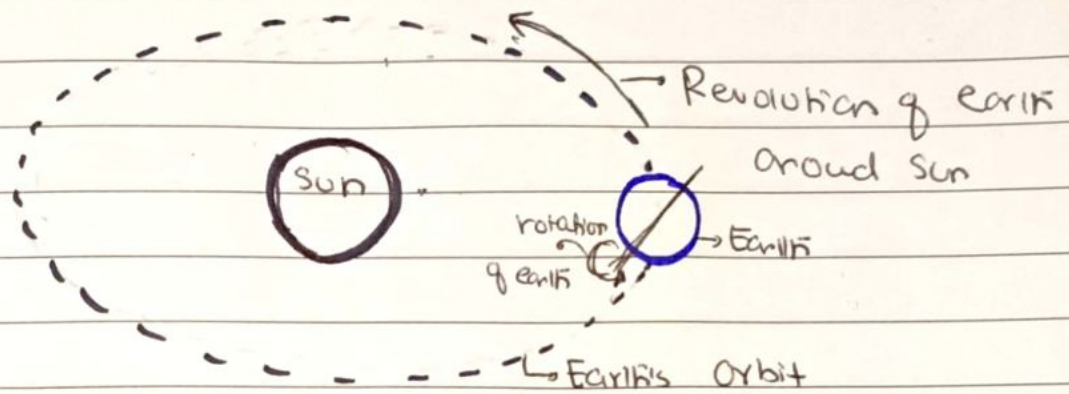 Revolution of earth
aroud Sun
Sun
rotation
of earth
Earth
Earth's Orbit